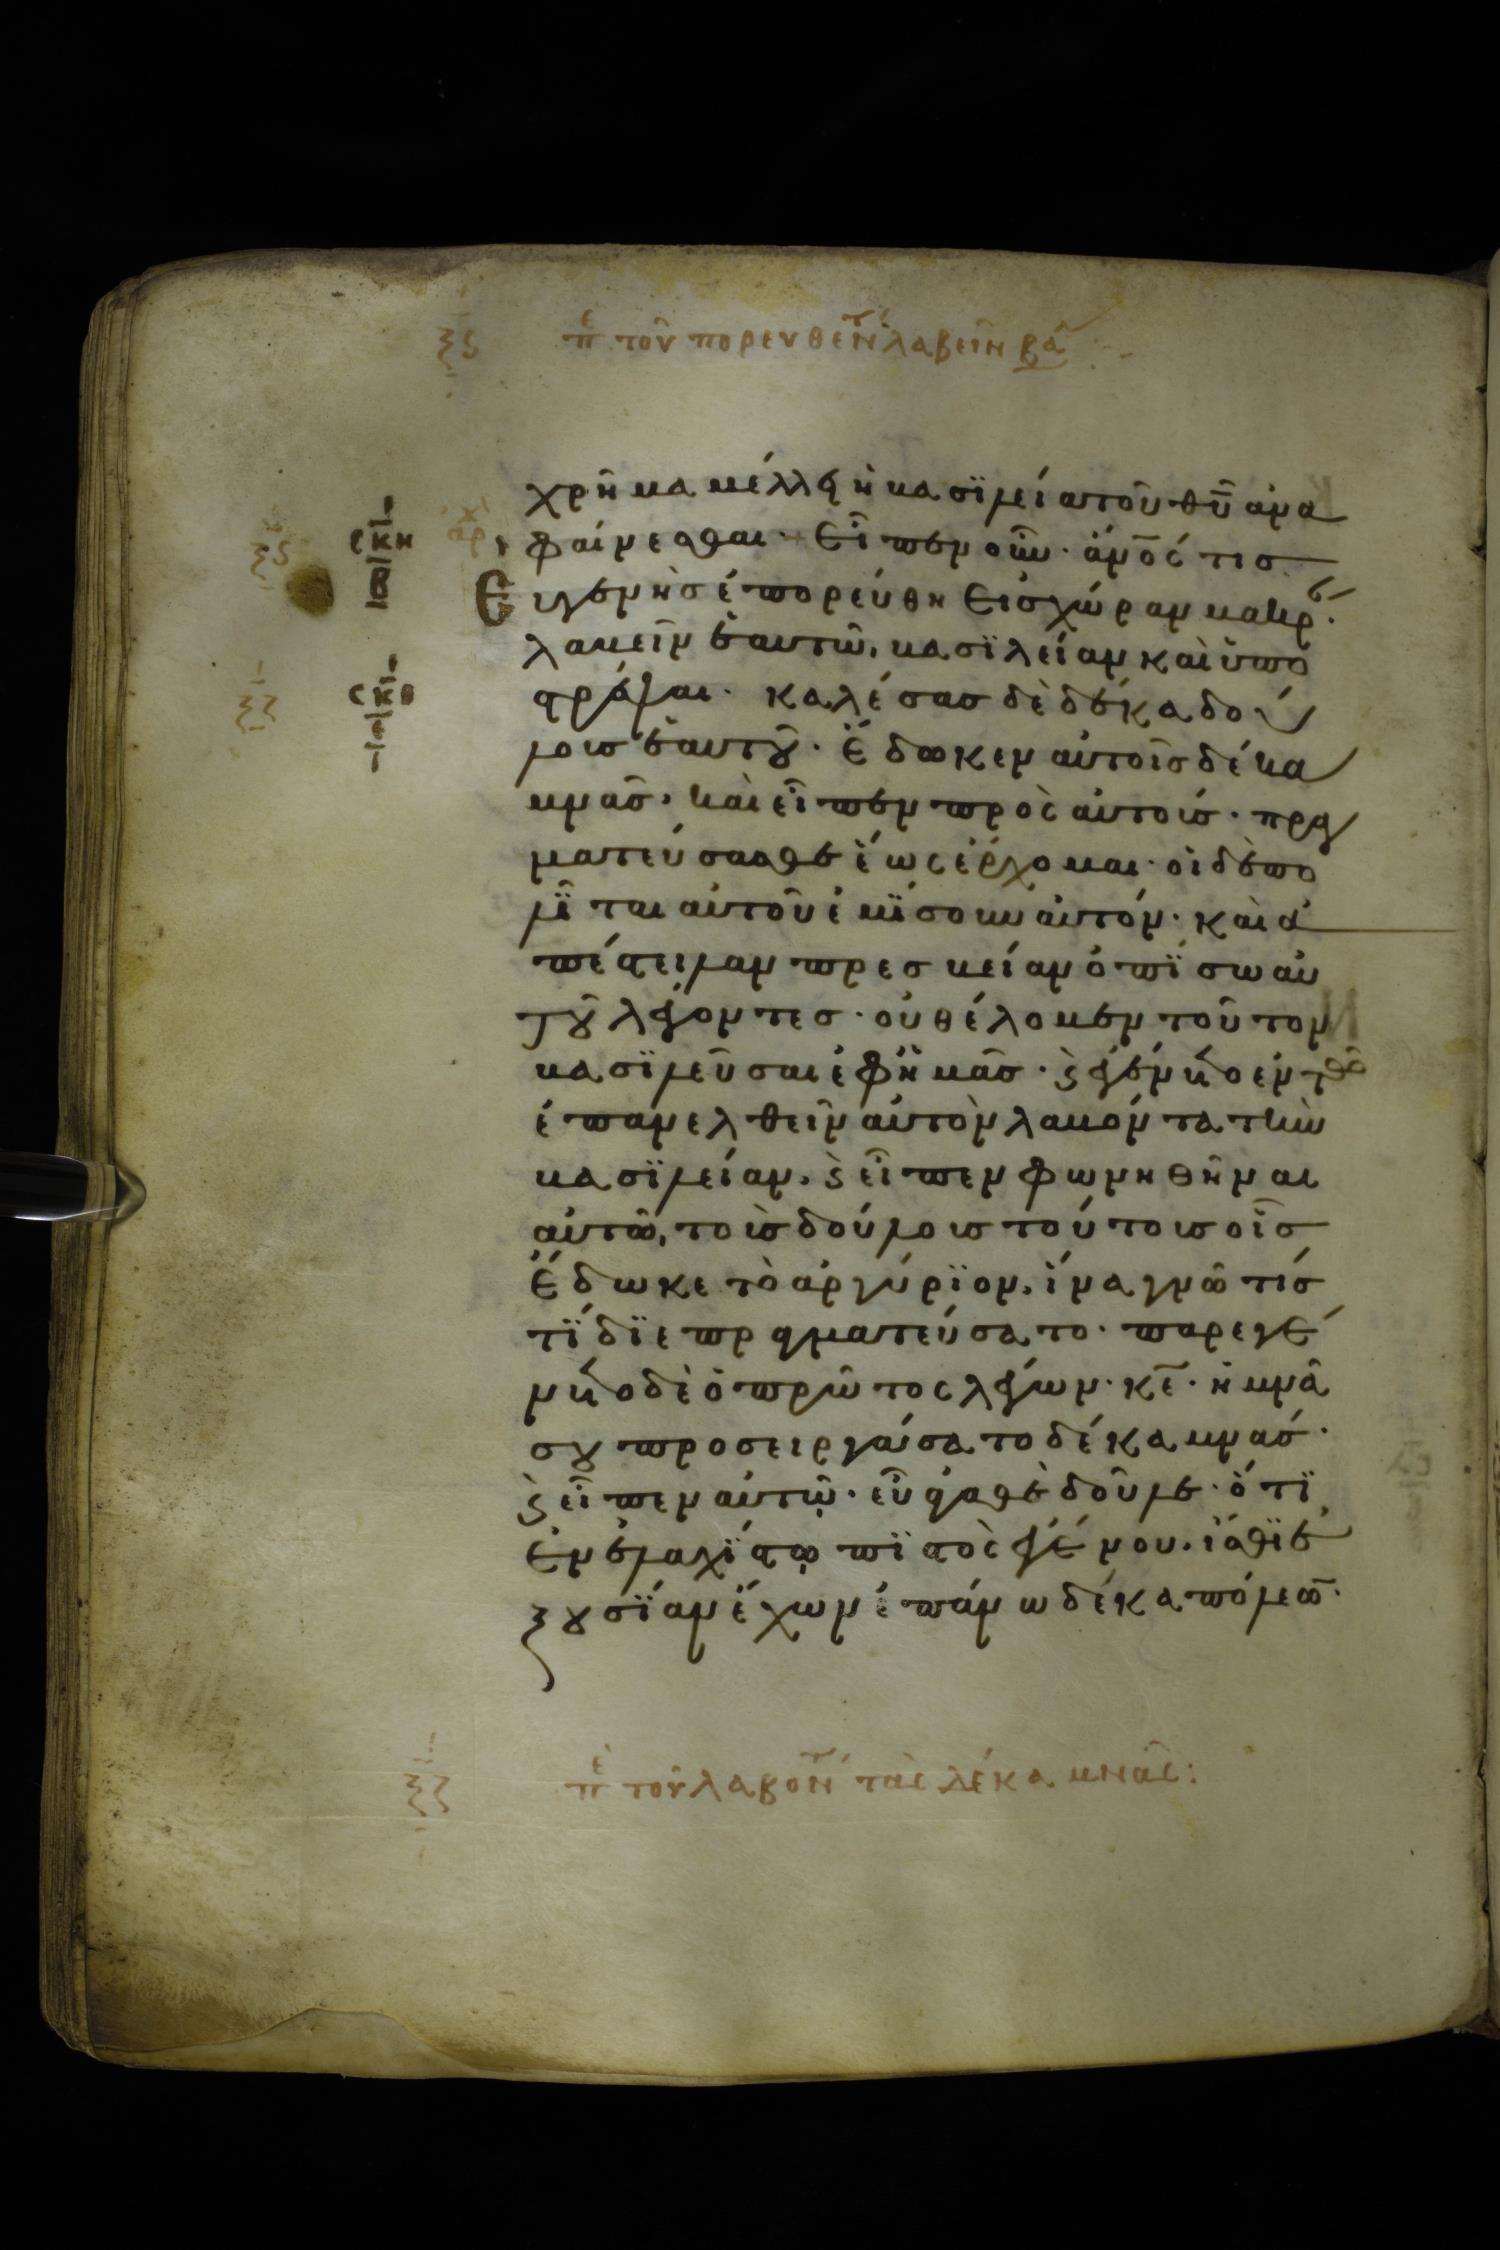 ξϛ π̅ε τοῦ πορευθεντ λαβεῖν βα
χρῆμα μέλλει ἡ βασϊλεία τοῦ θυ̅ ἀνα
φαίνεσθαι· Εἶπεν οὖν· ἄνο̅ς τισ
ευγενὴσ ἐπορεύθη εἰσ χώραν μακρ·
λαβεῖν ἑαυτῶ, βασϊλείαν καὶ ὑπο
στρέψαι· καλέσασ δὲ δέκα δού
λουσ ἑαυτοῦ· ἔδωκεν αὐτοῖσ δέκα
μνᾶσ· καὶ εἶπεν πρὸς αὐτούσ· πραγ
ματεύσασθε ἕως ἔρχομαι· οἱ δὲ πο
λῖται αὐτοῦ ἐμίσουν αὐτόν· καὶ ἀ
πέστειλαν πρεσβείαν ὀπίσω αὐ
τοῦ λέγοντεσ· οὐ θέλομεν τοῦτον
βασϊλεῦσαι ἐφ ἡμᾶσ· ϗ ἐγένετο ἐν τῶ
ἐπανελθεῖν αὐτὸν λαβόντα τὴν
βασϊλείαν, ϗ εἶπεν φωνηθῆναι
αὐτῶ, τοὺσ δούλουσ τούτουσ οἷσ
ἔδωκε τὸ ἀργύριον, ἵνα γνῶ τίσ
τϊ δϊεπραγματεύσατο· παρεγέ
νετο δὲ ὁ πρῶτος λέγων· κε̅· ἡ μνᾶ
σου προσειργάσατο δέκα μνάσ·
ϗ εἶπεν αὐτῷ· εὖ ἀγαθὲ δοῦλε· ὅτϊ
ἐν ἐλαχίστῳ πϊστὸς ἐγένου, ἴσθϊ ἐ
ξουσίαν ἔχων ἐπάνω δέκα πόλεων·
ξζ π̅ε τοῦ λαβοντ τὰς δέκα μνᾶς:
ξϛ
σκη
β
ξζ
σκθ